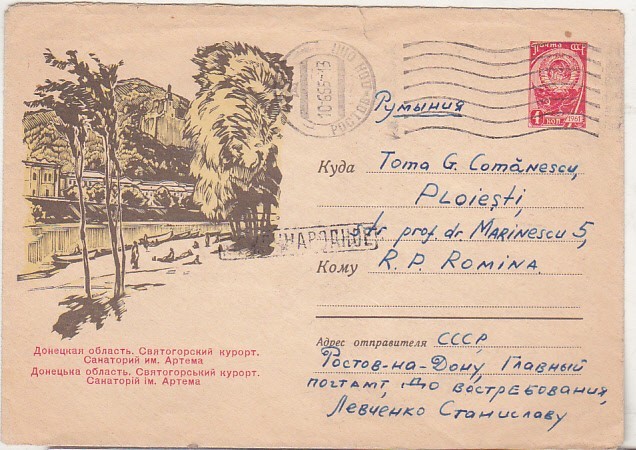 Почта СССР
4 КОП 1961
РОСТОВ
10 6 65 - 23
Румыния
Куда Toma G. Comănescu,
PLOIEȘTI,
str prof. dr. MARINESCU 5,
НАРОДНОЕ
Кому R. P. ROMINA
Адрес отправителя СССР,
Ростов-на-Дону, Главный
почтамт, до востребования,
Левченко Станиславу
Донецкая область. Святогорский курорт.
Санаторий им. Артема
Донецька область. Святогорський курорт.
Санаторій ім. Артема